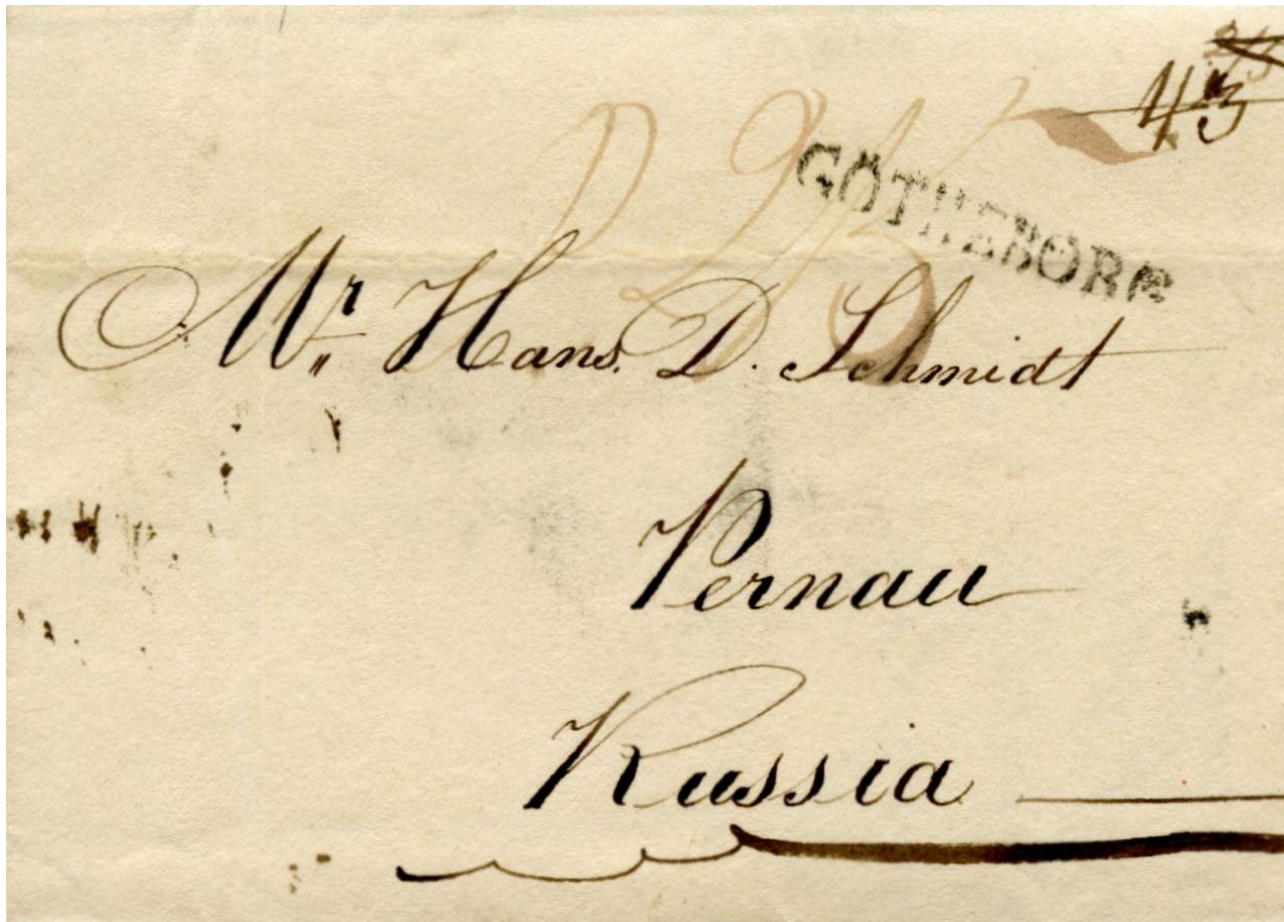 4/3
GÖTHEBORG
Mr. Hans. D. Schmidt
Pernau
Russia